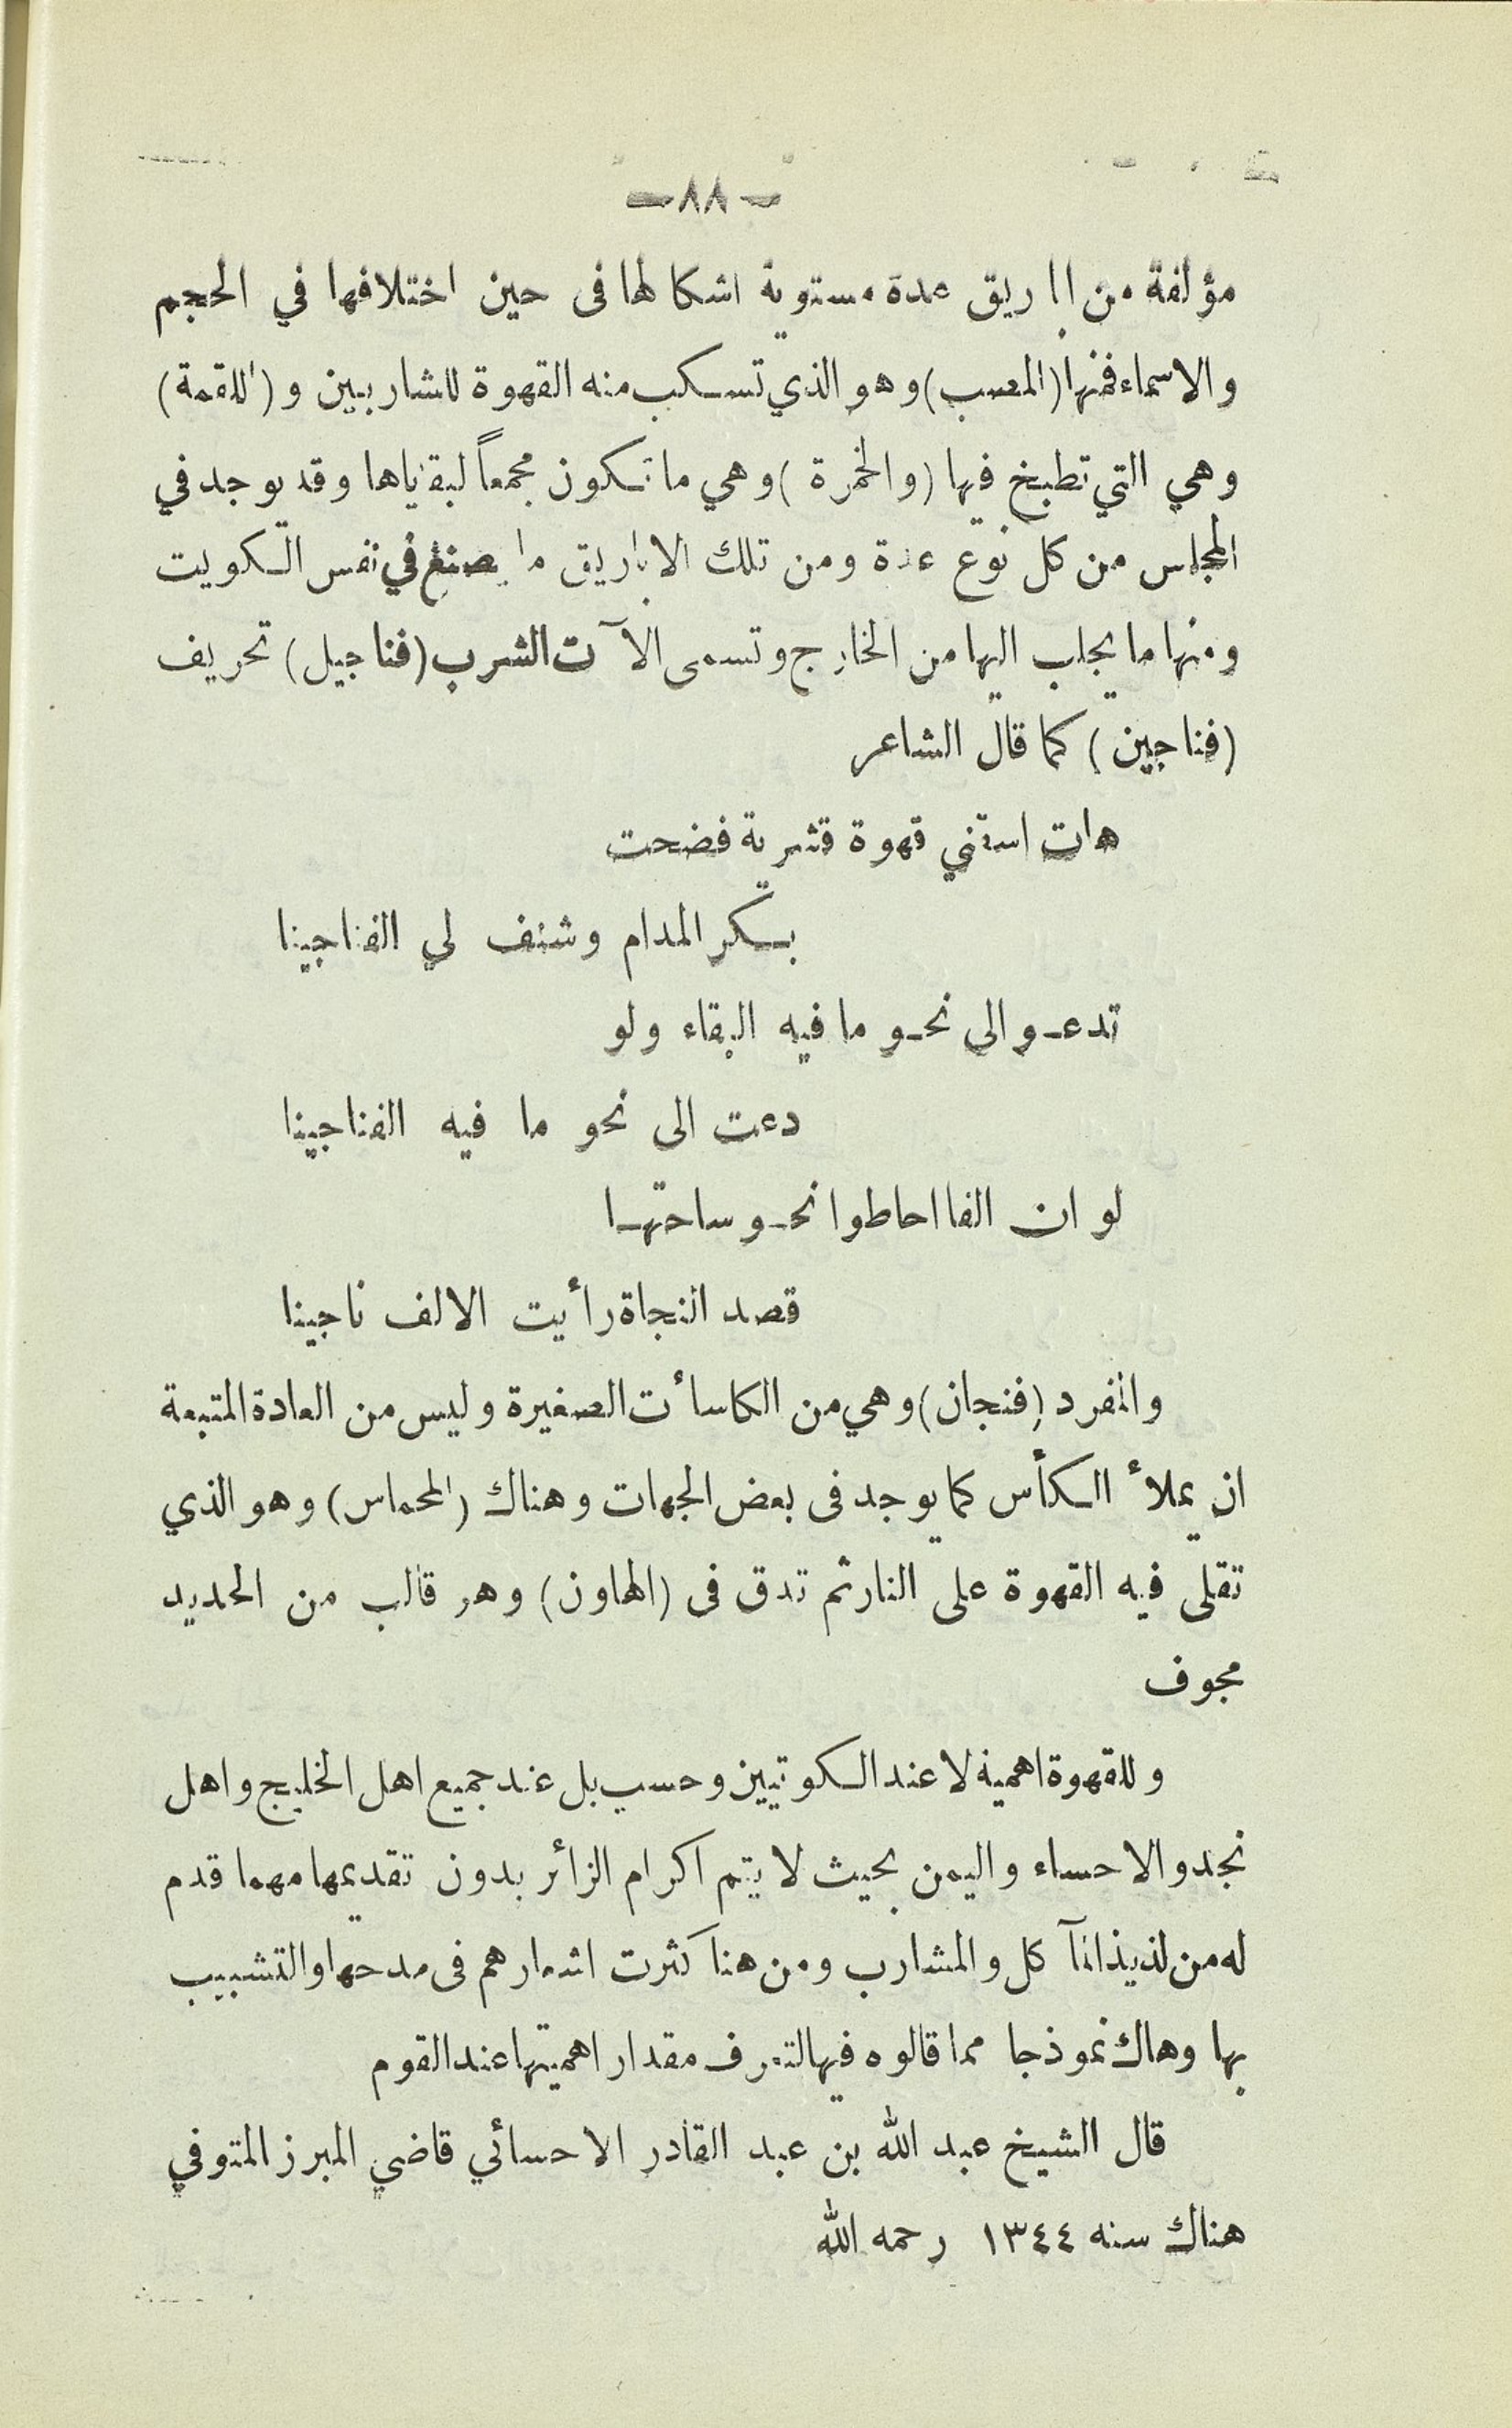 -٨٨-
مؤلفة من اباريق عدة مستوية اشكالها فى حين اختلافها في الحجم
والاسماء فمنها (المصب) وهو الذي تسكب منه القهوة للشاربين و (اللقمة)
وهي التي تطبخ فيها (والخمرة) وهي ما تكون مجمعاً لبقاياها وقد يوجد في
المجلس من كل نوع عدة ومن تلك الاباريق ما يصنع في نفس الكويت
ومنها ما يجلب اليها من الخارج وتسمى الآت الشرب (فناجيل) تحريف
(فناجين) كما قال الشاعر
هات اسقني قهوة قشرية فضحت
بسكر المدام وشنف لي الفناجينا
تدعو الى نحو ما فيه البقاء ولو
دعت الى نحو ما فيه الفناجينا
لو ان الفا احاطوا نحو ساحتها
قصد النجاة رأيت الالف ناجينا
والمفرد (فنجان) وهي من الكاسأت الصغيرة وليس من العادة المتبعة
ان يملأ الكأس كما يوجد فى بعض الجهات وهناك (المحماس) وهو الذي
تقلى فيه القهوة على النار ثم تدق فى (الهاون) وهو قالب من الحديد
مجوف
وللقهوة اهمية لا عند الكوتيين وحسب بل عند جميع اهل الخليج واهل
نجد والاحساء واليمن بحيث لا يتم اكرام الزائر بدون تقديمها مهما قدم
له من لذيذ المآ كل والمشارب ومن هنا كثرت اشعارهم فى مدحها والتشبيب
بها وهاك نموذجا مما قالوه فيها لتعرف مقدار اهميتها عند القوم
قال الشيخ عبد الله بن عبد القادر الاحسائي قاضي المبرز المتوفي
هناك سنه ١٣٤٤ رحمه الله